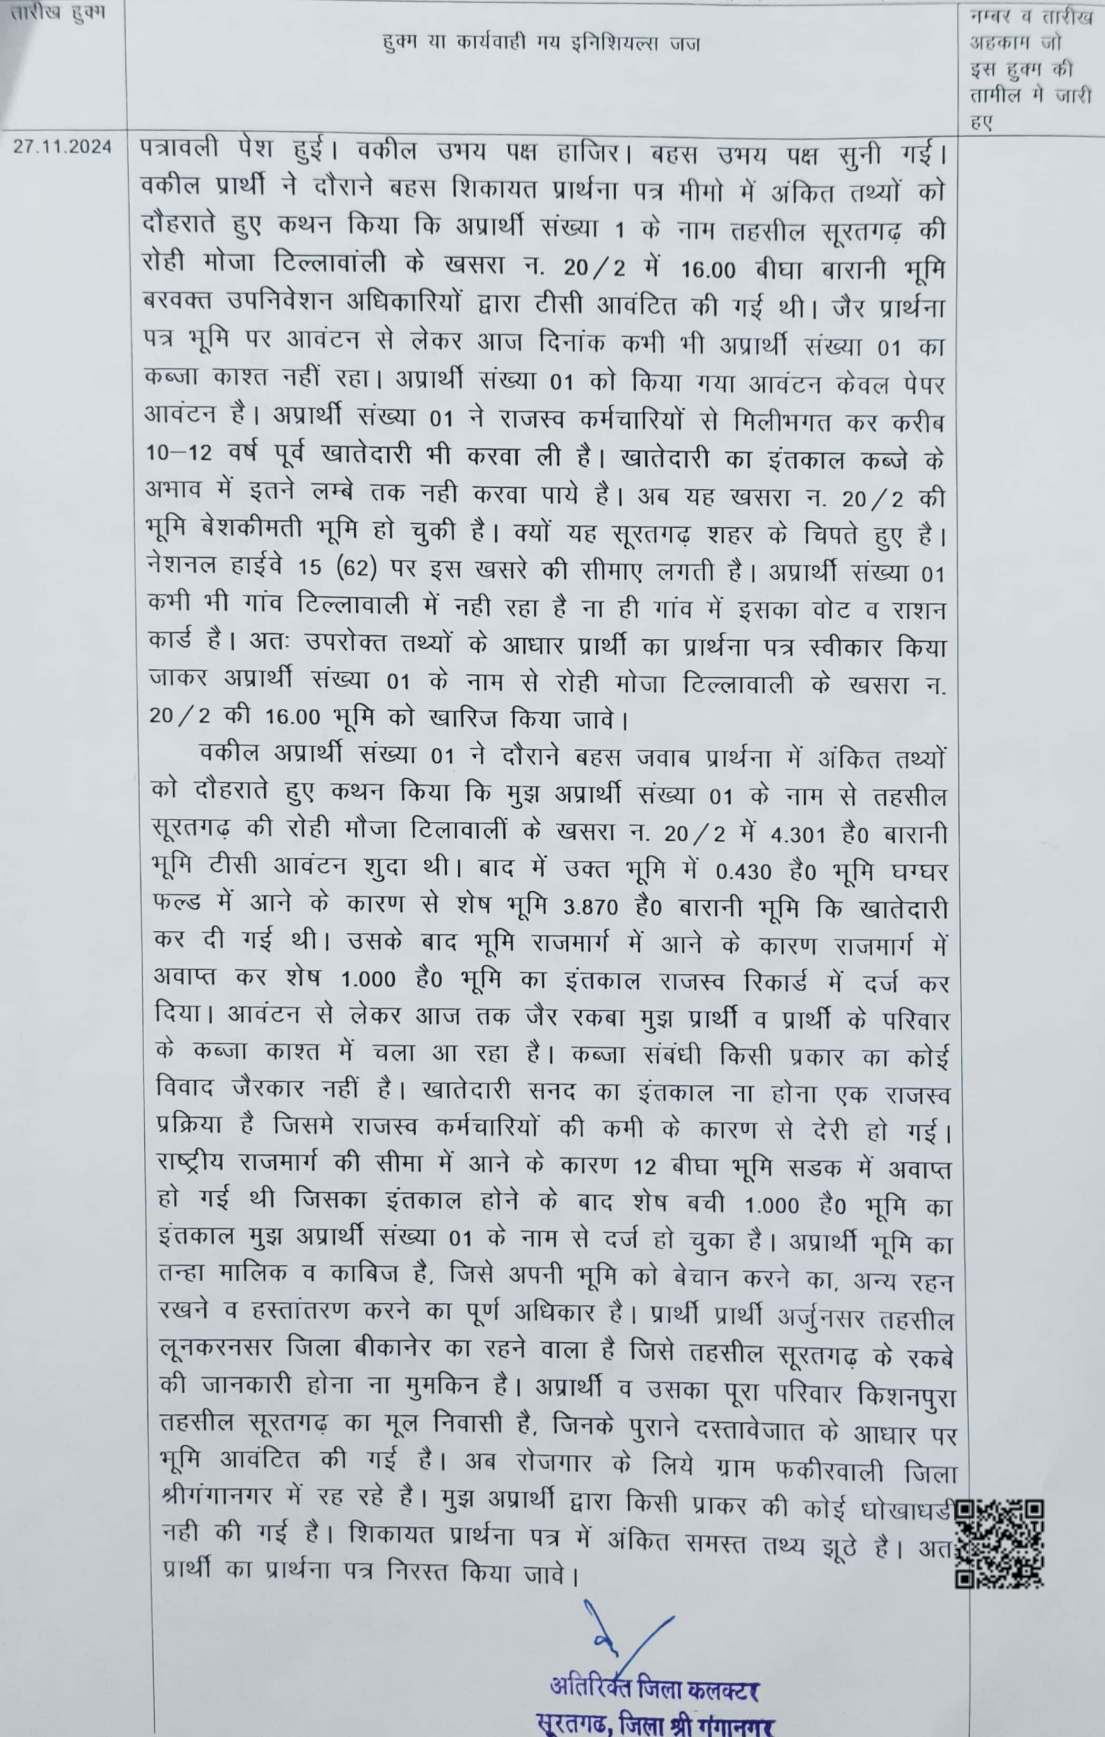 तारीख हुक्म
हुक्म या कार्यवाही मय इनिशियल्स जज
नम्बर व तारीख
अहकाम जो
इस हुक्म की
तामील मे जारी
हुए
27.11.2024
पत्रावली पेश हुई। वकील उभय पक्ष हाजिर। बहस उभय पक्ष सुनी गई।
वकील प्रार्थी ने दौराने बहस शिकायत प्रार्थना पत्र मीमो में अंकित तथ्यों को
दौहराते हुए कथन किया कि अप्रार्थी संख्या 1 के नाम तहसील सूरतगढ़ की
रोही मोजा टिल्लावांली के खसरा न. 20/2 में 16.00 बीघा बारानी भूमि
बरवक्त उपनिवेशन अधिकारियों द्वारा टीसी आवंटित की गई थी। जैर प्रार्थना
पत्र भूमि पर आवंटन से लेकर आज दिनांक कभी भी अप्रार्थी संख्या 01 का
कब्जा काश्त नहीं रहा। अप्रार्थी संख्या 01 को किया गया आवंटन केवल पेपर
आवंटन है। अप्रार्थी संख्या 01 ने राजस्व कर्मचारियों से मिलीभगत कर करीब
10–12 वर्ष पूर्व खातेदारी भी करवा ली है। खातेदारी का इंतकाल कब्जे के
अभाव में इतने लम्बे तक नही करवा पाये है। अब यह खसरा न. 20/2 की
भूमि बेशकीमती भूमि हो चुकी है। क्यों यह सूरतगढ़ शहर के चिपते हुए है।
नेशनल हाईवे 15 (62) पर इस खसरे की सीमाए लगती है। अप्रार्थी संख्या 01
कभी भी गांव टिल्लावाली में नही रहा है ना ही गांव में इसका वोट व राशन
कार्ड है। अतः उपरोक्त तथ्यों के आधार प्रार्थी का प्रार्थना पत्र स्वीकार किया
जाकर अप्रार्थी संख्या 01 के नाम से रोही मोजा टिल्लावाली के खसरा न.
20/2 की 16.00 भूमि को खारिज किया जावे।
वकील अप्रार्थी संख्या 01 ने दौराने बहस जवाब प्रार्थना में अंकित तथ्यों
को दौहराते हुए कथन किया कि मुझ अप्रार्थी संख्या 01 के नाम से तहसील
सूरतगढ़ की रोही मौजा टिलावालीं के खसरा न. 20/2 में 4.301 है0 बारानी
भूमि टीसी आवंटन शुदा थी। बाद में उक्त भूमि में 0.430 है0 भूमि घग्घर
फल्ड में आने के कारण से शेष भूमि 3.870 है0 बारानी भूमि कि खातेदारी
कर दी गई थी। उसके बाद भूमि राजमार्ग में आने के कारण राजमार्ग में
अवाप्त कर शेष 1.000 है0 भूमि का इंतकाल राजस्व रिकार्ड में दर्ज कर
दिया। आवंटन से लेकर आज तक जैर रकबा मुझ प्रार्थी व प्रार्थी के परिवार
के कब्जा काश्त में चला आ रहा है। कब्जा संबंधी किसी प्रकार का कोई
विवाद जैरकार नहीं है। खातेदारी सनद का इंतकाल ना होना एक राजस्व
प्रक्रिया है जिसमे राजस्व कर्मचारियों की कमी के कारण से देरी हो गई।
राष्ट्रीय राजमार्ग की सीमा में आने के कारण 12 बीघा भूमि सडक में अवाप्त
हो गई थी जिसका इंतकाल होने के बाद शेष बची 1.000 है0 भूमि का
इंतकाल मुझ अप्रार्थी संख्या 01 के नाम से दर्ज हो चुका है। अप्रार्थी भूमि का
तन्हा मालिक व काबिज है, जिसे अपनी भूमि को बेचान करने का, अन्य रहन
रखने व हस्तांतरण करने का पूर्ण अधिकार है। प्रार्थी प्रार्थी अर्जुनसर तहसील
लूनकरनसर जिला बीकानेर का रहने वाला है जिसे तहसील सूरतगढ़ के रकबे
की जानकारी होना ना मुमकिन है। अप्रार्थी व उसका पूरा परिवार किशनपुरा
तहसील सूरतगढ़ का मूल निवासी है, जिनके पुराने दस्तावेजात के आधार पर
भूमि आवंटित की गई है। अब रोजगार के लिये ग्राम फकीरवाली जिला
श्रीगंगानगर में रह रहे है। मुझ अप्रार्थी द्वारा किसी प्राकर की कोई धोखाधडी
नही की गई है। शिकायत प्रार्थना पत्र में अंकित समस्त तथ्य झूठे है। अतः
प्रार्थी का प्रार्थना पत्र निरस्त किया जावे।
अतिरिक्त जिला कलक्टर
सूरतगढ, जिला श्री गंगानगर